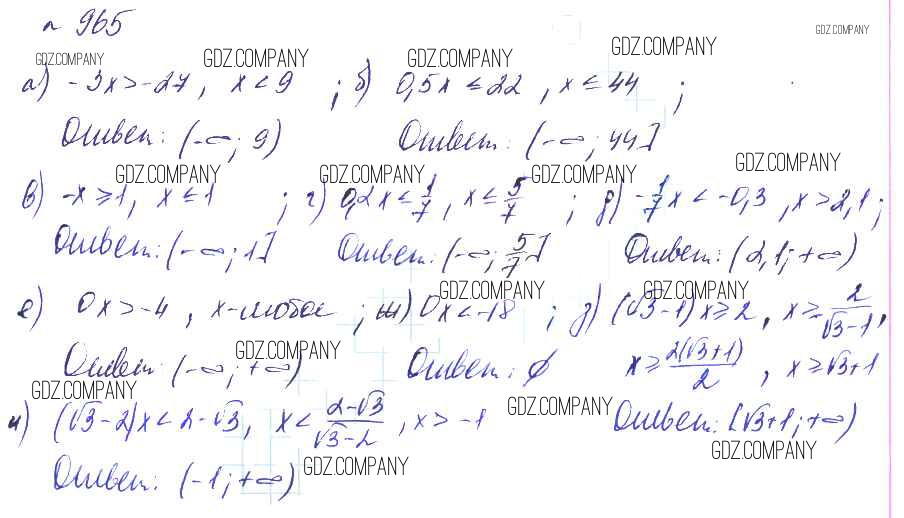 № 965
GDZ.COMPANY GDZ.COMPANY GDZ.COMPANY GDZ.COMPANY GDZ.COMPANY
а) -3x > -27, x < 9 ; б) 0,5x ≤ 22, x ≤ 44 ;
Ответ: (-∞; 9) Ответ: (-∞; 44]
GDZ.COMPANY GDZ.COMPANY GDZ.COMPANY GDZ.COMPANY
в) -x ≥ 1, x ≤ 1 ; г) 0,2x ≤ 1/7, x ≤ 5/7 ; д) -1/7x < -0,3, x > 2,1;
Ответ: (-∞; 1] Ответ: (-∞; 5/7] Ответ: (2,1; +∞)
GDZ.COMPANY GDZ.COMPANY
е) 0x > -4, x-любое ; ж) 0x < -18 ; з) (√3-1)x ≥ 2, x ≥ 2/(√3-1),
GDZ.COMPANY
Ответ: (-∞; +∞) Ответ: ∅ x ≥ 2(√3+1)/2, x ≥ √3+1
GDZ.COMPANY GDZ.COMPANY
и) (√3-2)x < 2-√3, x < (2-√3)/(√3-2), x > -1 Ответ: [√3+1; +∞)
GDZ.COMPANY GDZ.COMPANY
Ответ: (-1; +∞)